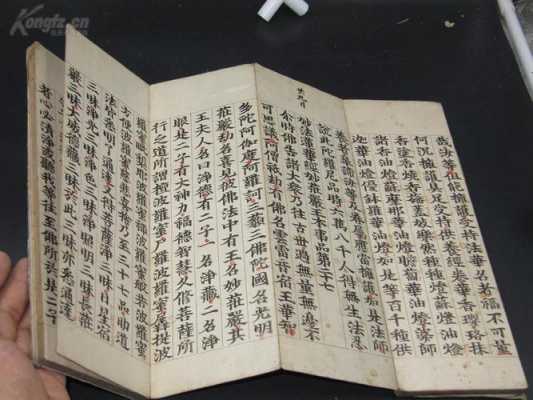 哉汝等但能擁護受持法華名者福不可量
何況擁護具足受持供養經卷華香瓔珞抹
香塗香燒香幡蓋伎樂然種種燈蘇燈油燈
諸香油燈蘇摩那華油燈瞻蔔華油燈婆師
迦華油燈優鉢羅華油燈如是等百千種供
養者皋諦汝等及眷屬應當擁護如是法師
說此陀羅尼品時六萬八千人得無生法忍
妙法蓮華經妙莊嚴王本事品第二十七
尒時佛告諸大眾乃往古世過無量無邊不
可思議阿僧祇劫有佛名雲雷音宿王華智
多陀阿伽度阿羅訶三藐三佛陀國名光明
莊嚴劫名喜見彼佛法中有王名妙莊嚴其
王夫人名曰淨德有二子一名淨藏二名淨
眼是二子有大神力福德智慧久修菩薩所
行之道所謂檀波羅蜜尸羅波羅蜜羼提波
羅蜜毗梨耶波羅蜜禪波羅蜜般若波羅蜜
方便波羅蜜慈悲喜捨乃至三十七品助道
法皆悉明了通達又得菩薩淨三昧日星宿
三昧淨光三昧淨色三昧淨照明三昧長莊
嚴三昧大威德藏三昧於此三昧亦悉通達
Kongfz.cn